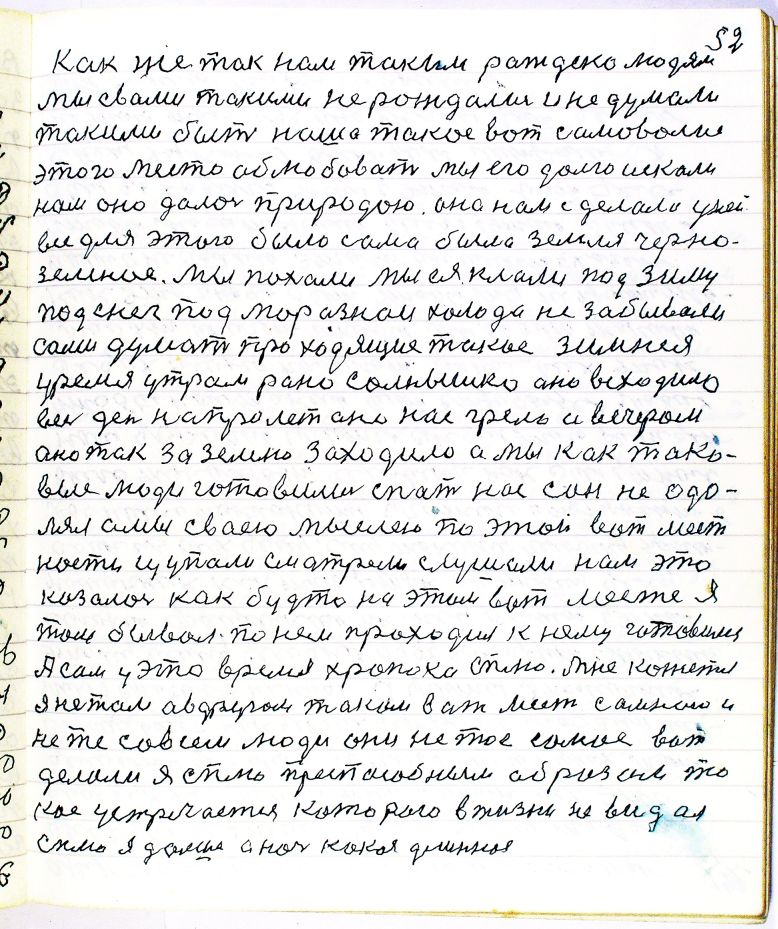 52
Как же так нам таким раждено людям
мы свами такими не рождалис и не думали
такими быть наша такое вот самоволие
этого место облюбовать мы его долго искали
нам оно далос природою. она нам сделала у ней
все для этого было сама была земля черно-
земное. мы похали мы сяяли под зиму
под снег под моразнаи холода не забывали
сами думать проходящие такое зимнея
уремя утрам рано солнышко ано выходило
вес ден напролет ано нас грело а вечером
ано так за землю заходило а мы как тако-
выи люди готовилис спать нас сон не одо-
лял амы сваею мыслею по этой вот мест
ности щупали сматрели слушали нам это
казалос как будто на этом вот месте я
там бывал по нем проходил к нему готовился
Я сам у это время храпока сплю. Мне кажется
я не там авдругом таком вот мест самною и
не те совсем люди они не тое самое вот
делали я сплю преспасобным образам та
кое устречается которого в жизни не видал
сплю я дальше а ноч какоя длинноя